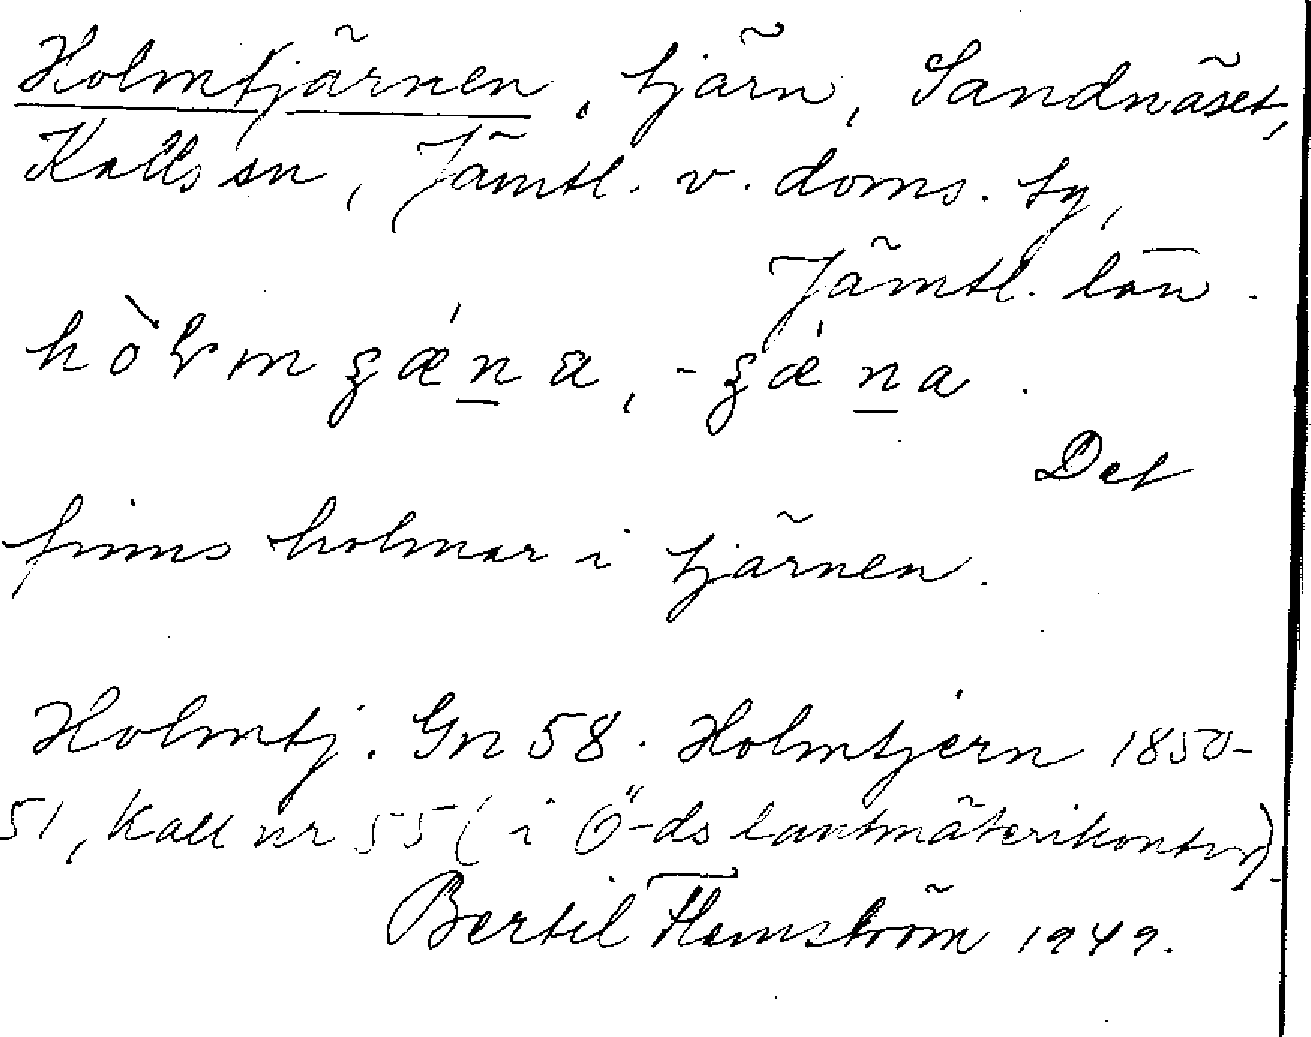 Holmtjärnen, tjärn, Sandnäset,
Kalls sn, Jämtl. v. doms. tg,
Jämtl. län.
Det
finns holmar i tjärnen.
Holmtj. Gn 58. Holmtjern 1850-
51, Kall nr 55 (i Ö-ds lantmäterikontor).
Bertil Flemström 1949.